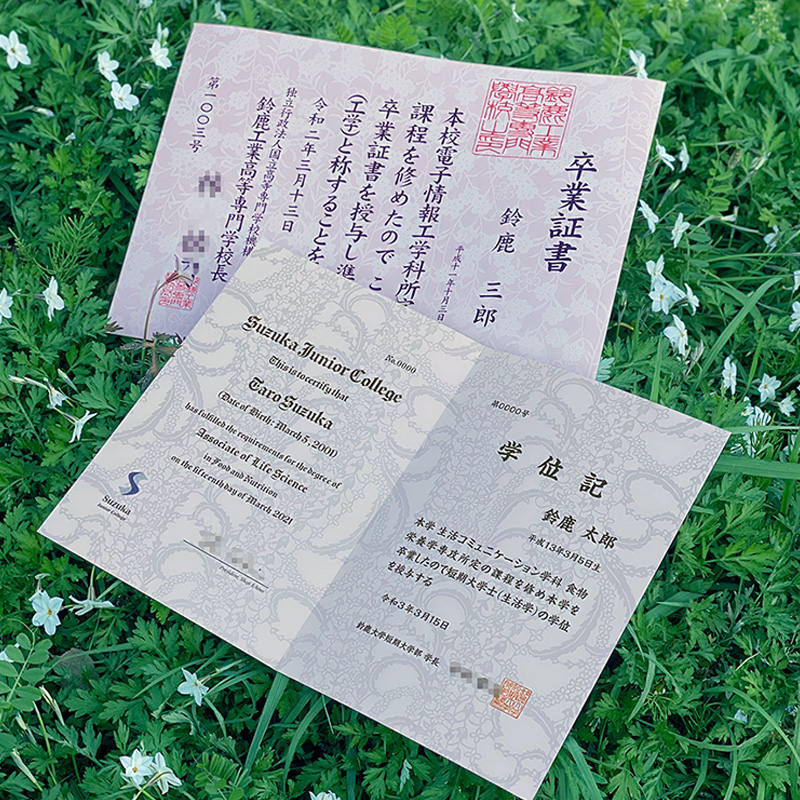 卒業証書
鈴鹿 三郎
平成十一年十月三日
本校電子情報工学科所定
課程を修めたので こ
卒業証書を授与し進
(工学)と称することを
令和二年三月十三日
独立行政法人国立高等専門学校機構
鈴鹿工業高等専門学校長
第一〇〇三号
No.0000
Suzuka Junior College
This is to certify that
Taro Suzuka
(Date of Birth; March 5, 2001)
has fulfilled the requirements for the degree of
Associate of Life Science
in Food and Nutrition
on the fifteenth day of March 2021
Suzuka
Junior College
第0000号
学位記
鈴鹿 太郎
平成13年3月5日生
本学 生活コミュニケーション学科 食物
栄養学専攻所定の課程を修め本学を
卒業したので短期大学士(生活学)の学位
を授与する
令和3年3月15日
鈴鹿大学短期大学部 学長